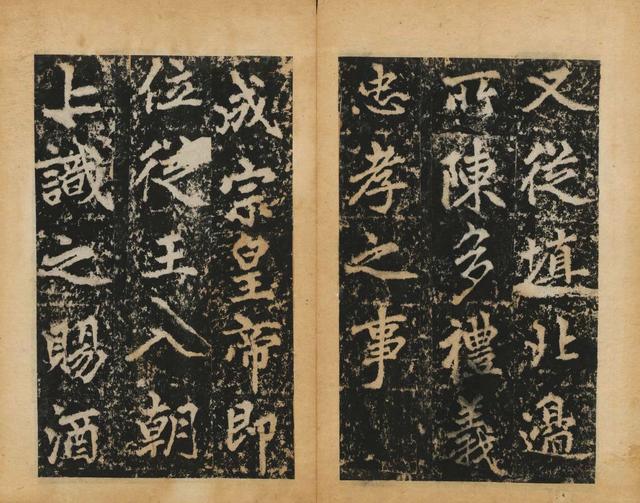 又從填北邊
所陳多禮義
忠孝之事
成宗皇帝即
位從王入朝
上識之賜酒